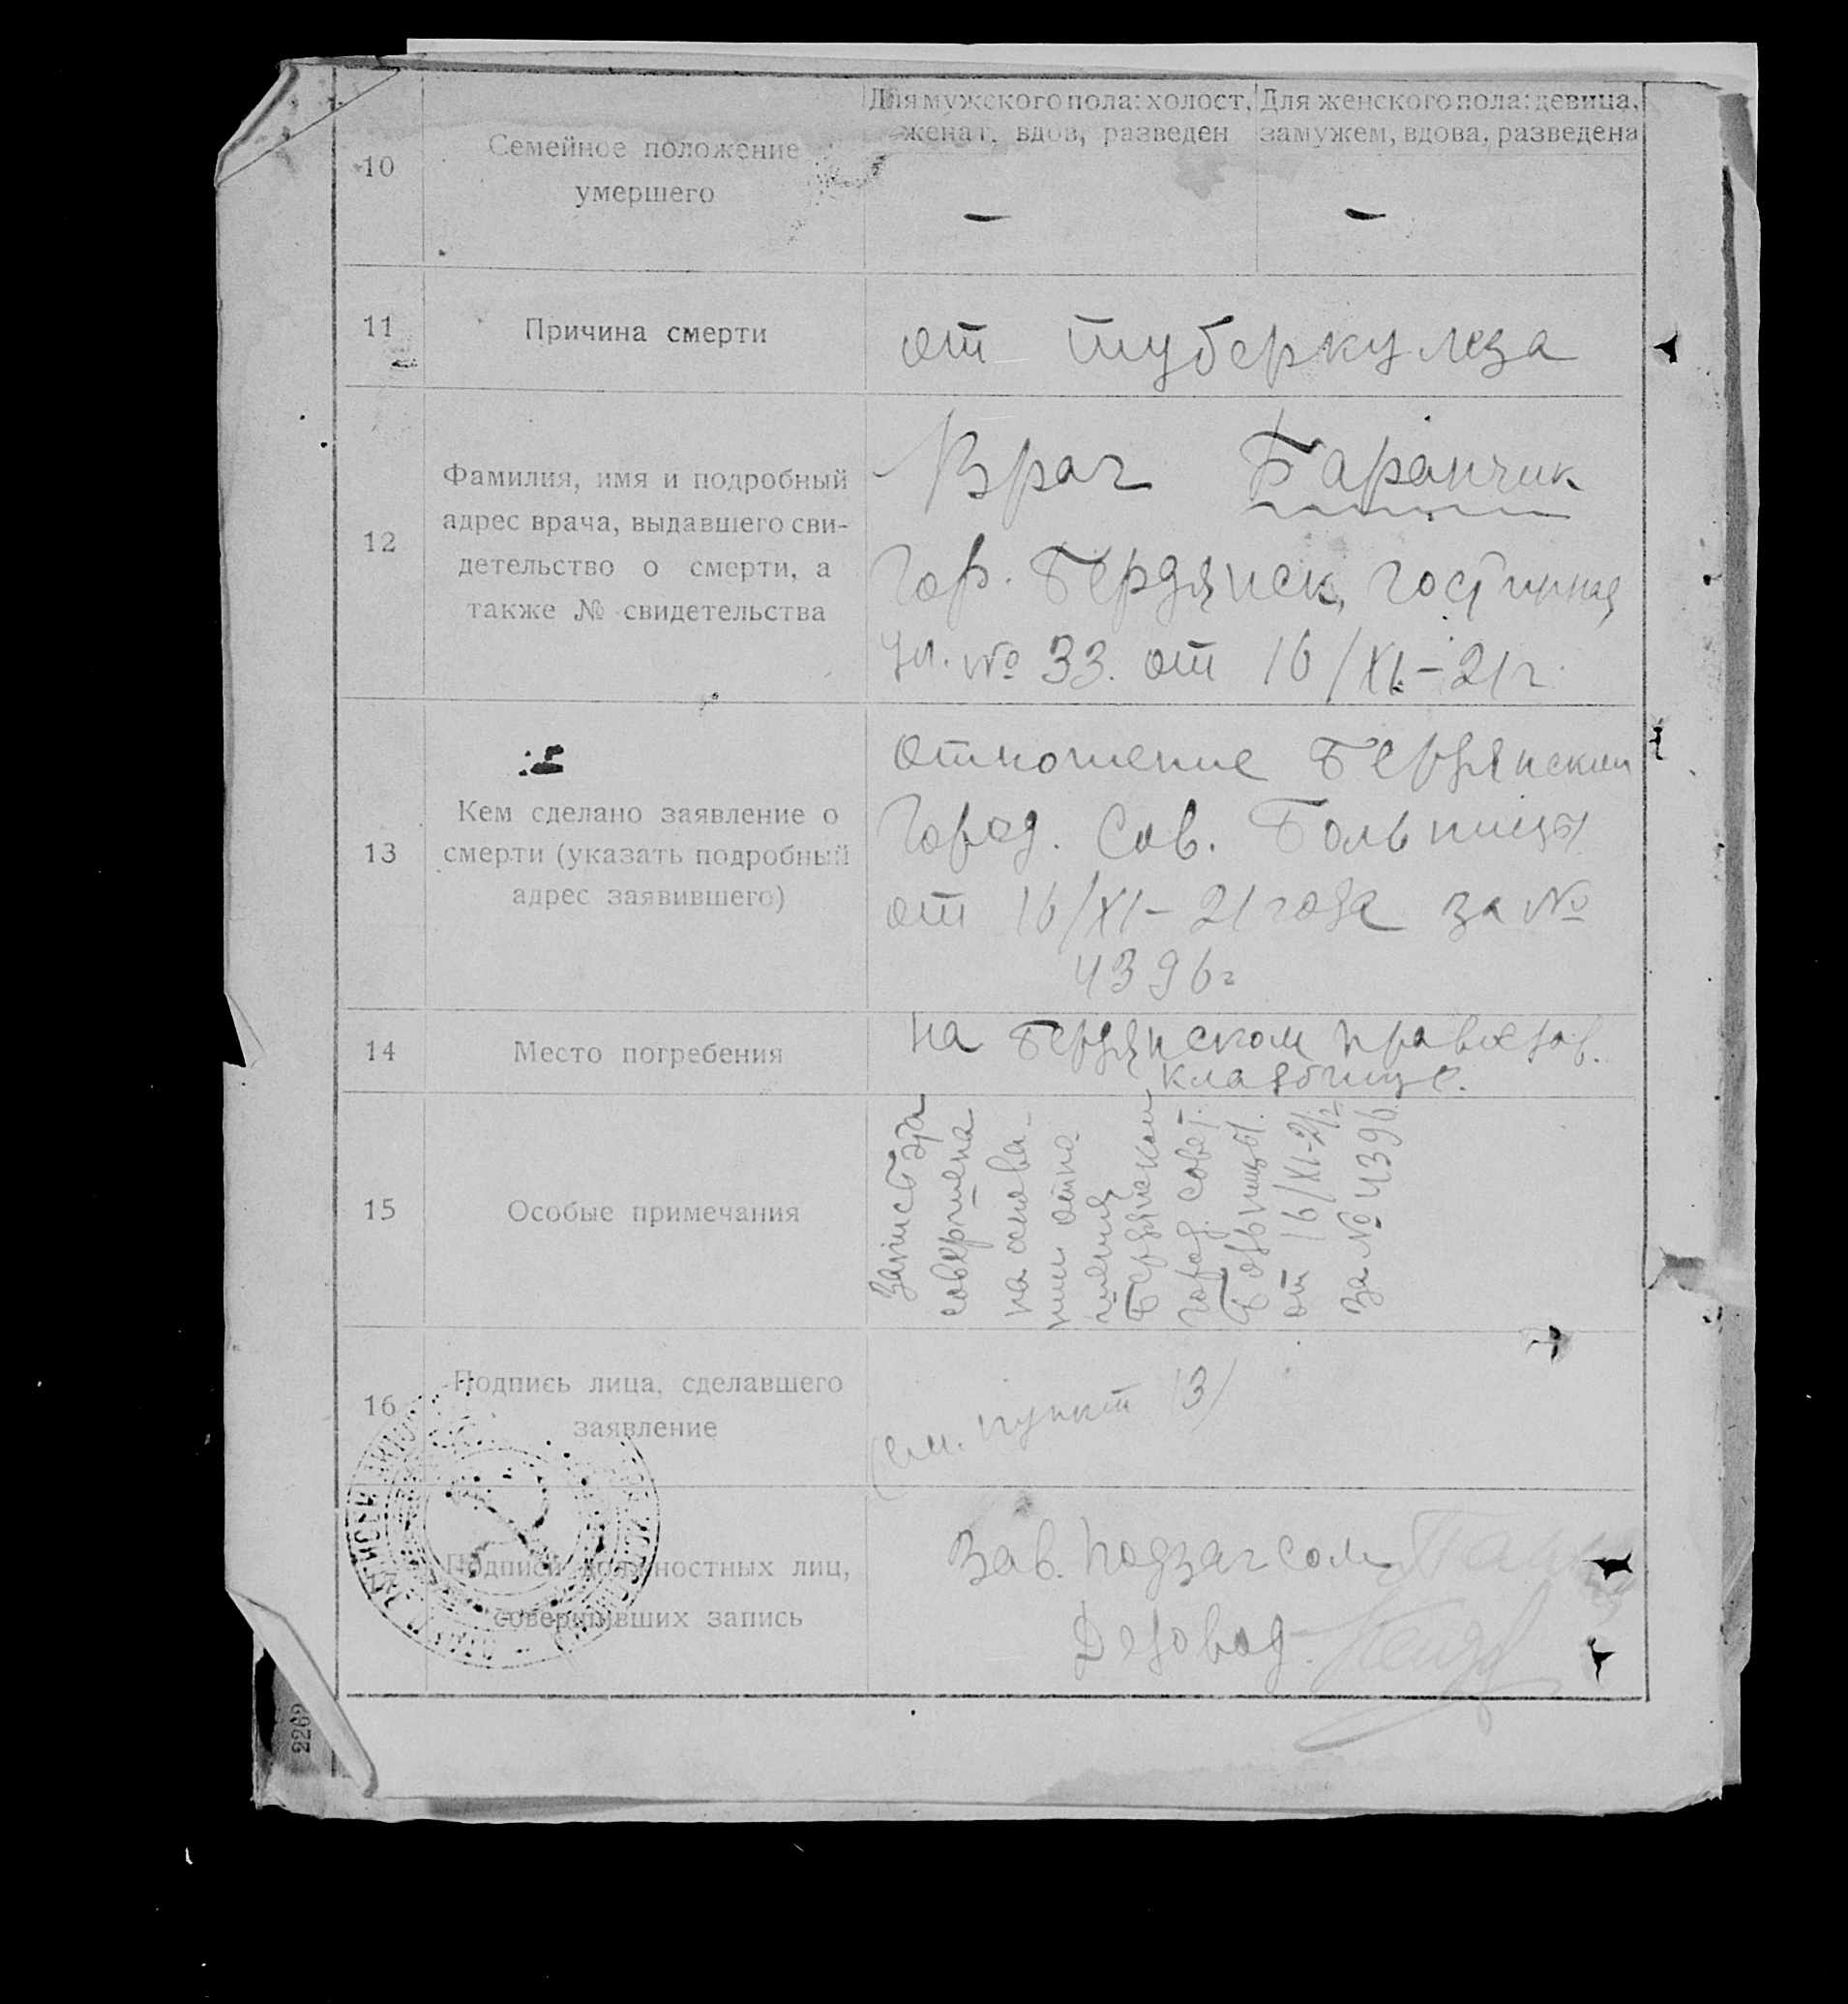 10
Семейное положение
умершего
Для мужского пола: холост,
женат, вдов, разведен
Для женского пола: девица,
замужем, вдова, разведена
–
–
11
Причина смерти
от туберкулеза
12
Фамилия, имя и подробный
адрес врача, выдавшего сви-
детельство о смерти, а
также № свидетельства
Врач Баранчик
Гор. Бердянск, Гостинная
ул. № 33. от 16/XI-21 г.
13
Кем сделано заявление о
смерти (указать подробный
адрес заявившего)
отношение Бердянской
Город. Сов. Больницы
от 16/XI-21 года за №
4396
14
Место погребения
на Бердянском
кладбище.
15
Особые примечания
Запись эта
совершена
на основа-
нии отно
шения
Бердянской
Город. Совет.
Больницы.
от 16/XI-21 г.
за № 4396.
16
Подпись лица, сделавшего
заявление
(см. пункт 13)
Подписи должностных лиц,
совершивших запись
Зав. Подзагсом
Деловод.
2262